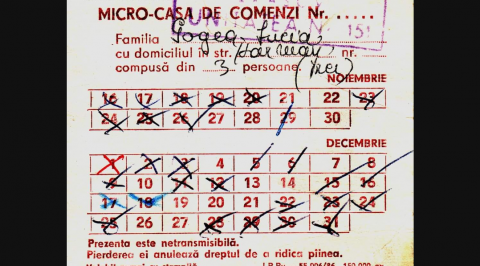 MICRO-CASA DE COMENZI Nr. .....
UNITATEA N. 151
Familia Gogea Lucia
cu domiciliul în str. Harman nr.
compusă din 3 persoane. (trei)
NOIEMBRIE
16 17 18 19 20 21 22 23
24 25 26 27 28 29 30
DECEMBRIE
1 2 3 4 5 6 7 8
9 10 11 12 13 14 15 16
17 18 19 20 21 22 23 24
25 26 27 28 29 30 31
Prezenta este netransmisibilă.
Pierderea ei anulează dreptul de a ridica pîinea.